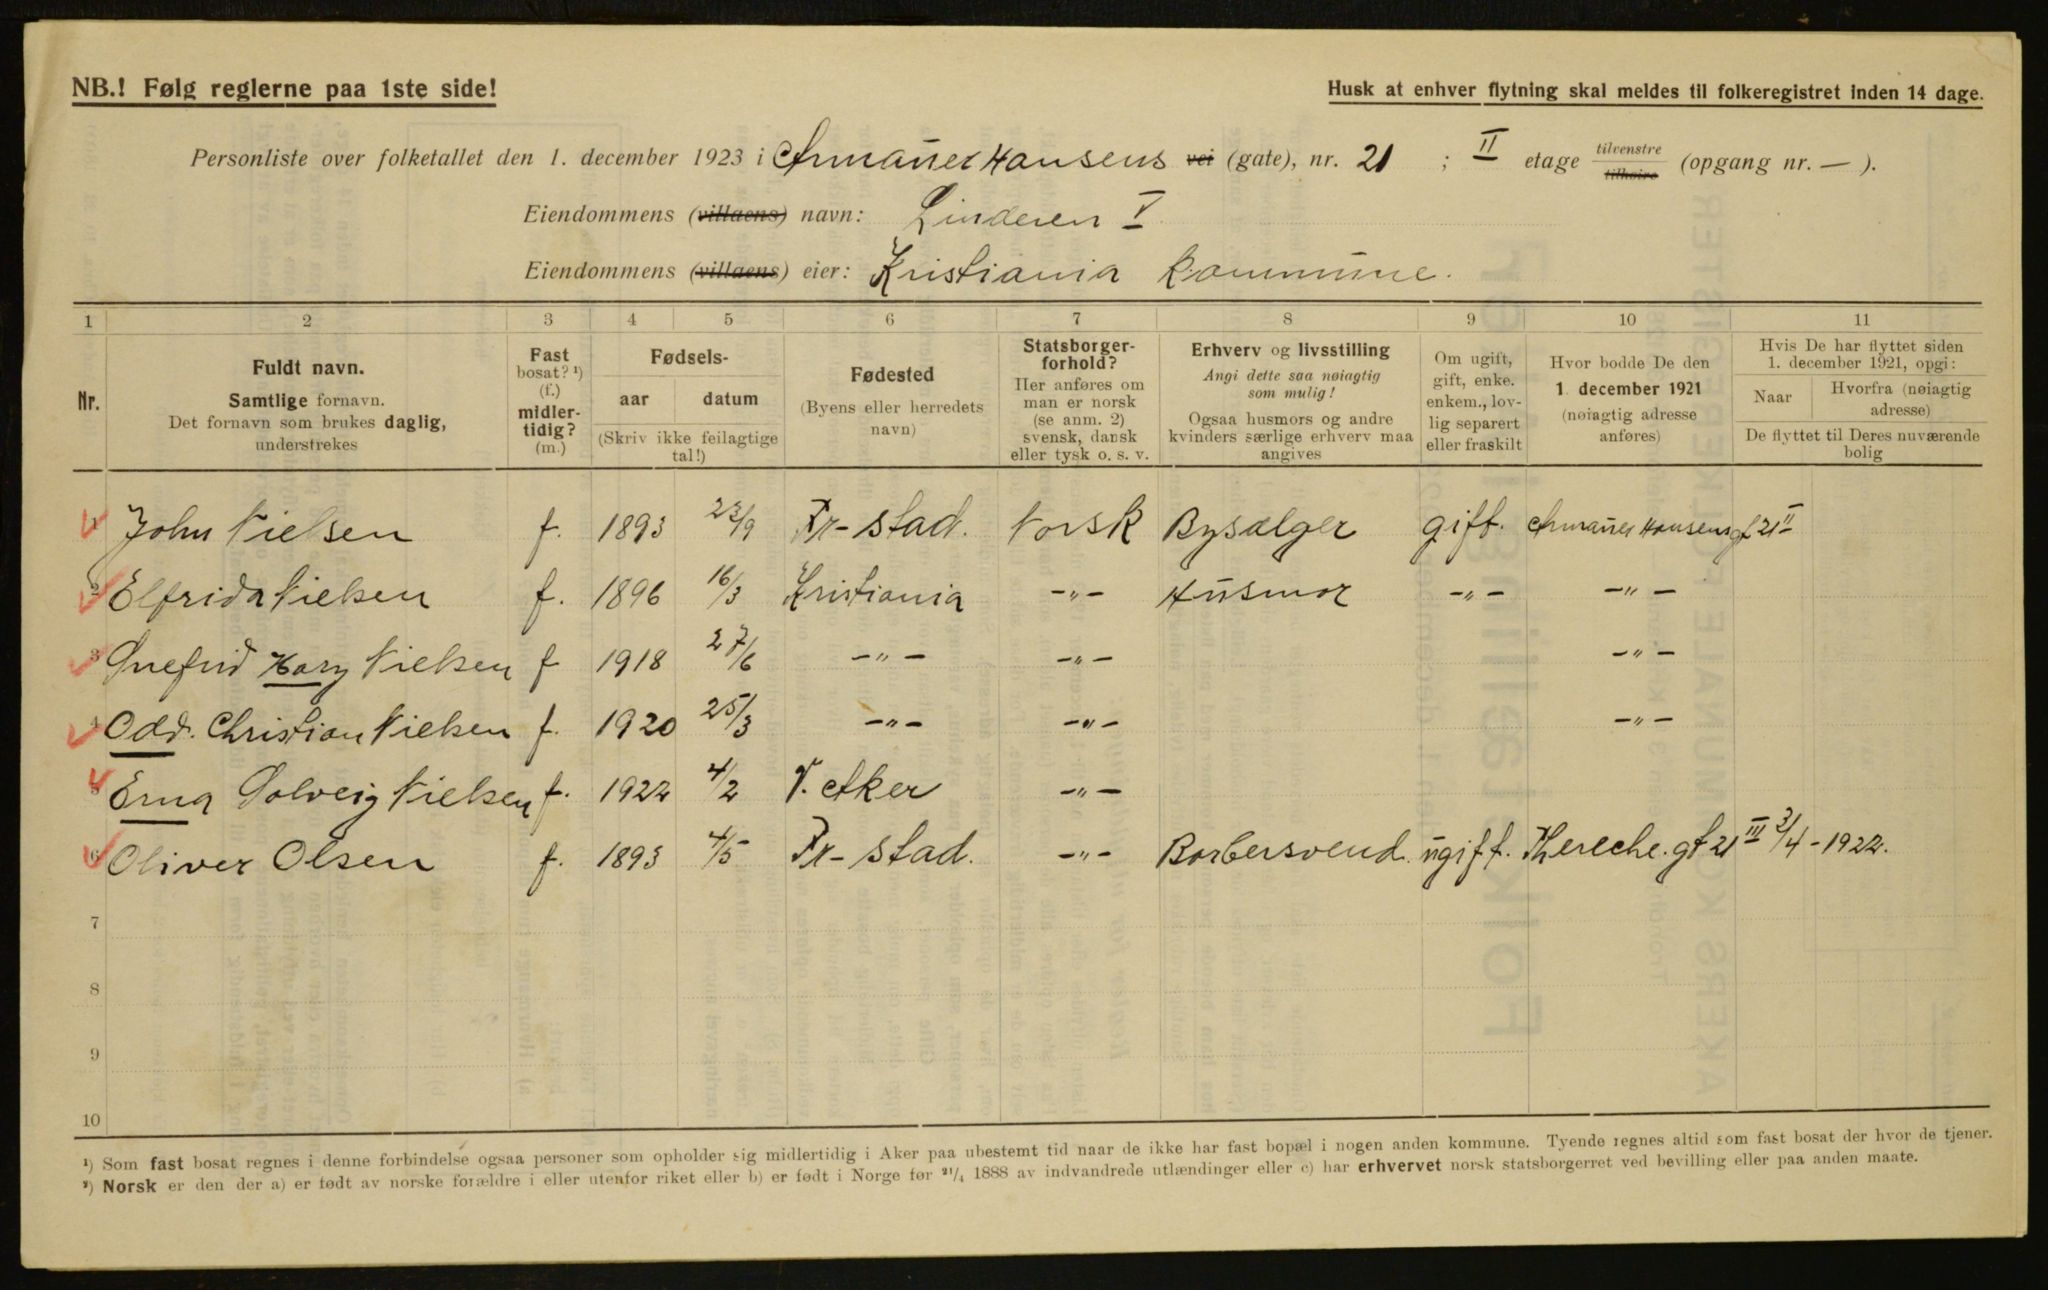 NB.! Følg reglerne paa 1ste side!
Husk at enhver flytning skal meldes til folkeregistret inden 14 dage.
Personliste over folketallet den 1. december 1923 i Armauer Hansens vei (gate), nr. 21 ; II etage tilvenstre tilhøire (opgang nr. — ).
Eiendommens (villaens) navn: Linderen V
Eiendommens (villaens) eier: Kristiania kommune.
1 2 3 4 5 6 7 8 9 10 11
Nr.
Fuldt navn.
Samtlige fornavn.
Det fornavn som brukes daglig,
understrekes
Fast
bosat? ¹)
(f.)
midler-
tidig?
(m.)
Fødsels-
aar datum
(Skriv ikke feilagtige
tal!)
Fødested
(Byens eller herredets
navn)
Statsborger-
forhold?
Her anføres om
man er norsk
(se anm. 2)
svensk, dansk
eller tysk o. s. v.
Erhverv og livsstilling
Angi dette saa nøiagtig
som mulig!
Ogsaa husmors og andre
kvinders særlige erhverv maa
angives
Om ugift,
gift, enke.
enkem., lov-
lig separert
eller fraskilt
Hvor bodde De den
1. december 1921
(nøiagtig adresse
anføres)
Hvis De har flyttet siden
1. december 1921, opgi:
Naar
Hvorfra (nøiagtig
adresse)
De flyttet til Deres nuværende
bolig
1 John Nielsen f. 1893 23/9 Fr-stad. Norsk Bysælger gift. Armauer Hansens gt 21 II
2 Elfrida Nielsen f. 1896 16/3 Kristiania -"- Husmor -"- -"-
3 Hary Nielsen f 1918 27/6 -"- -"- -"-
4 Odd. Christian Nielsen f. 1920 25/3 -"- -"- -"-
5 Erna Solveig Nielsen f. 1922 4/2 V. Aker -"-
6 Oliver Olsen f. 1893 4/5 Fr-stad. -"- Barbersvend. ugift. gt 21 III 3/4-1922.
7
8
9
10
¹) Som fast bosat regnes i denne forbindelse ogsaa personer som opholder sig midlertidig i Aker paa ubestemt tid naar de ikke har fast bopæl i nogen anden kommune. Tyende regnes altid som fast bosat der hvor de tjener.
²) Norsk er den der a) er født av norske forældre i eller utenfor riket eller b) er født i Norge før ²¹/₄ 1888 av indvandrede utlændinger eller c) har erhvervet norsk statsborgerret ved bevilling eller paa anden maate.